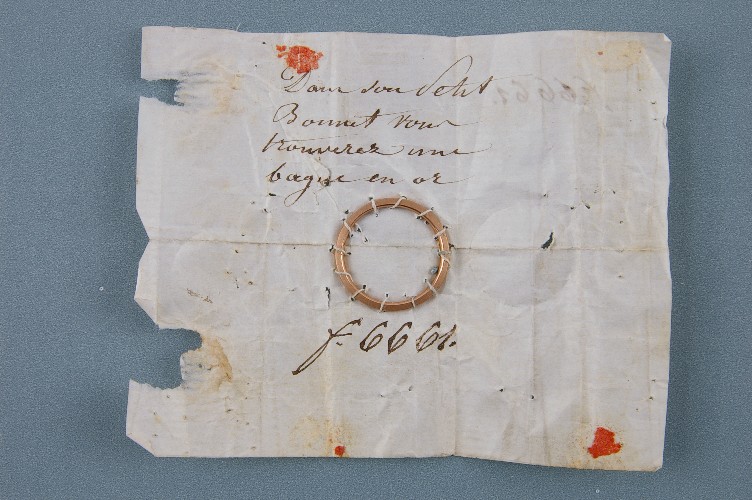 Dans son petit
Bonnet vous
trouverez une
bague en or
f. 6661.